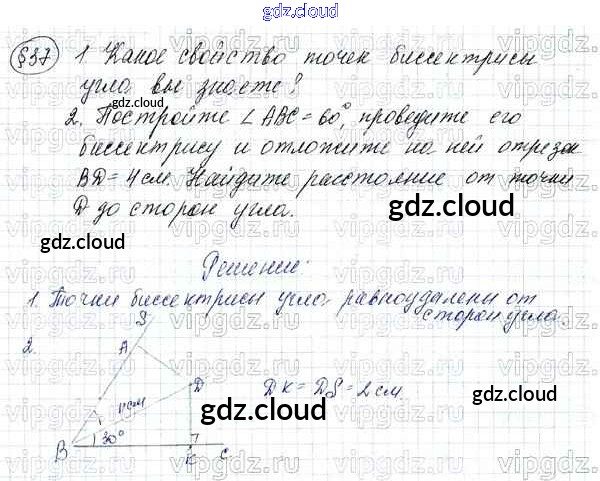 gdz.cloud
§37 1. Какое свойство точек биссектрисы
угла вы знаете?
gdz.cloud
2. Постройте ∠ABC = 60°, проведите его
биссектрису и отложите на ней отрезок
BD = 4 см. Найдите расстояние от точки
D до сторон угла.
gdz.cloud
gdz.cloud
Решение:
1. Точки биссектрисы угла равноудалены от
сторон угла.
2.
S
A
D
DK = DS = 2 см.
4 см
gdz.cloud
gdz.cloud
30°
B
K
C
vipgdz.cloud